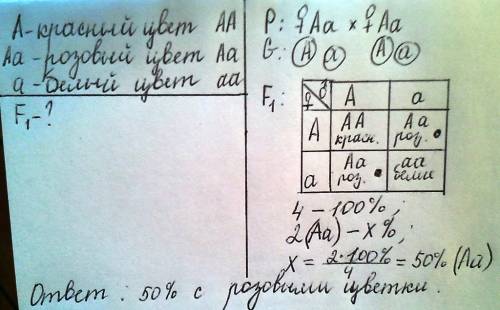 А-красный цвет АА
Аа-розовый цвет Аа
а-белый цвет аа
F₁-?
P: ♀Аа × ♀Аа
G: А а А а
F₁:
♀ ♂ А а
А АА красн. Аа роз.
а Аа роз. аа белый
4 – 100%;
2(Аа) – х%;
х = 2·100% / 4 = 50% (Аа)
Ответ: 50% с розовыми цветки.